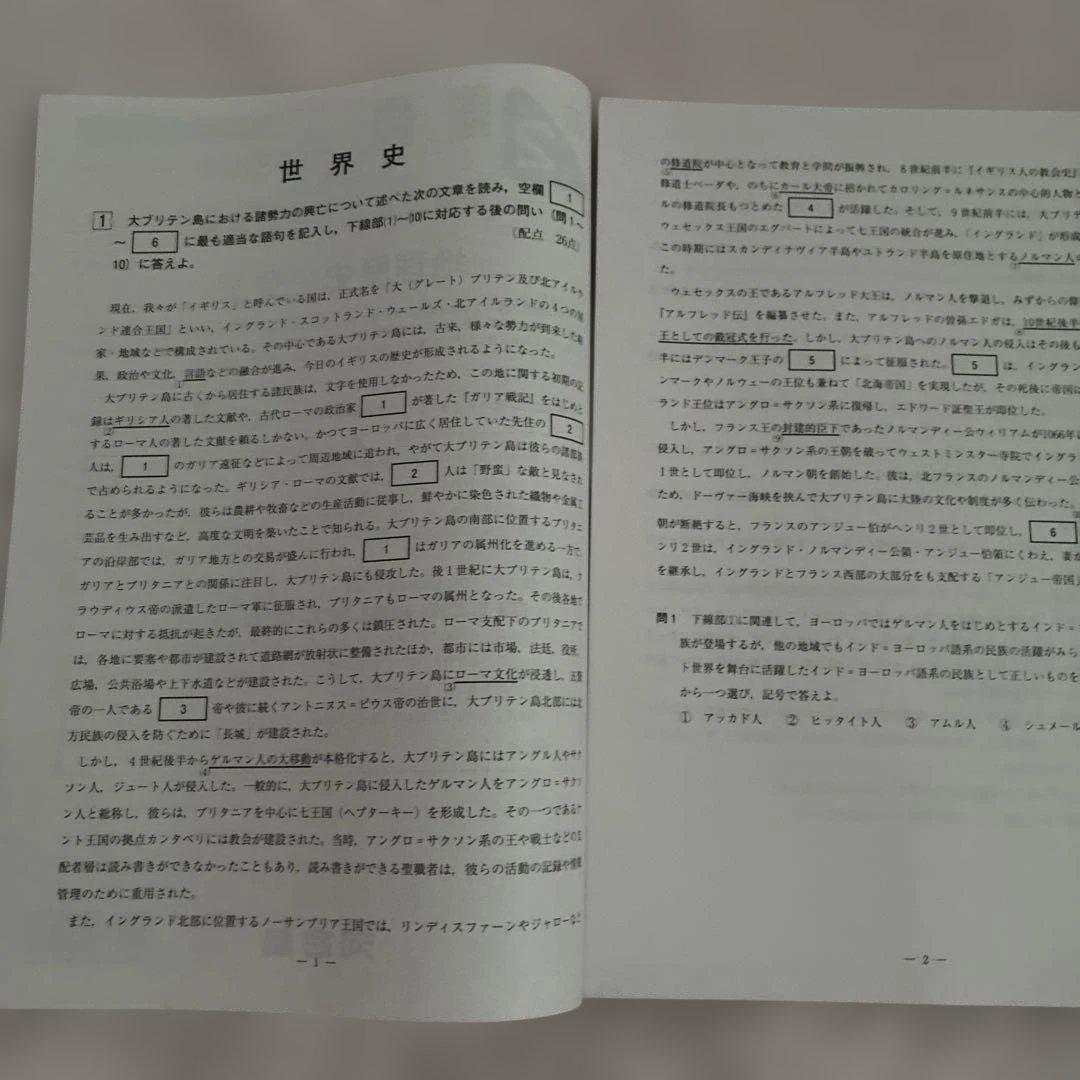 世界史
1 大ブリテン島における諸勢力の興亡について述べた次の文章を読み，空欄 1
～ 6 に最も適当な語句を記入し，下線部⑴～⑽に対応する後の問い（問1～
10）に答えよ。 （配点 26点）
現在，我々が「イギリス」と呼んでいる国は，正式名を「大（グレート）ブリテン及び北アイル
ンド連合王国」といい，イングランド・スコットランド・ウェールズ・北アイルランドの4つの
家・地域などで構成されている。その中心である大ブリテン島には，古来，様々な勢力が到来した
果，政治や文化，言語などの融合が進み，今日のイギリスの歴史が形成されるようになった。
⑴
大ブリテン島に古くから居住する諸民族は，文字を使用しなかったため，この地に関する初期の
録はギリシア人の著した文献や，古代ローマの政治家 1 が著した『ガリア戦記』をはじめと
⑵
するローマ人の著した文献を頼るしかない。かつてヨーロッパに広く居住していた先住の 2
人は， 1 のガリア遠征などによって周辺地域に追われ，やがて大ブリテン島は彼らの諸部族
で占められるようになった。ギリシア・ローマの文献では， 2 人は「野蛮」な敵と見なされ
ることが多かったが，彼らは農耕や牧畜などの生産活動に従事し，鮮やかに染色された織物や金属工
芸品を生み出すなど，高度な文明を築いたことで知られる。大ブリテン島の南部に位置するブリタニ
アの沿岸部では，ガリア地方との交易が盛んに行われ， 1 はガリアの属州化を進める一方で，
ガリアとブリタニアとの関係に注目し，大ブリテン島にも侵攻した。後1世紀に大ブリテン島は，ク
ラウディウス帝の派遣したローマ軍に征服され，ブリタニアもローマの属州となった。その後各地で
ローマに対する抵抗が起きたが，最終的にこれらの多くは鎮圧された。ローマ支配下のブリタニアで
は，各地に要塞や都市が建設されて道路網が放射状に整備されたほか，都市には市場，法廷，役所，
広場，公共浴場や上下水道などが建設された。こうして，大ブリテン島にローマ文化が浸透し，五賢
⑶
帝の一人である 3 帝や彼に続くアントニヌス＝ピウス帝の治世に，大ブリテン島北部には北
方民族の侵入を防ぐために「長城」が建設された。
しかし，4世紀後半からゲルマン人の大移動が本格化すると，大ブリテン島にはアングル人やサク
⑷
ソン人，ジュート人が侵入した。一般的に，大ブリテン島に侵入したゲルマン人をアングロ＝サクソ
ン人と総称し，彼らは，ブリタニアを中心に七王国（ヘプターキー）を形成した。その一つであるケ
ント王国の拠点カンタベリには教会が建設された。当時，アングロ＝サクソン系の王や戦士などの支
配者層は読み書きができなかったこともあり，読み書きができる聖職者は，彼らの活動の記録や情報
管理のために重用された。
また，イングランド北部に位置するノーサンブリア王国では，リンディスファーンやジャローなど
― 1 ―
の修道院が中心となって教育と学問が振興され，8世紀前半に『イギリス人の教会史』
⑸
修道士ベーダや，のちにカール大帝に招かれてカロリング＝ルネサンスの中心的人物と
⑹
ルの修道院長もつとめた 4 が活躍した。そして，9世紀前半には，大ブリテ
ウェセックス王国のエグバートによって七王国の統合が進み，「イングランド」が形成
この時期にはスカンディナヴィア半島やユトランド半島を原住地とするノルマン人の
⑺
た。
ウェセックスの王であるアルフレッド大王は，ノルマン人を撃退し，みずからの偉
『アルフレッド伝』を編纂させた。また，アルフレッドの曽孫エドガは，10世紀後半
⑻
王としての戴冠式を行った。しかし，大ブリテン島へのノルマン人の侵入はその後も
半にはデンマーク王子の 5 によって征服された。 5 は，イングラン
ンマークやノルウェーの王位も兼ねて「北海帝国」を実現したが，その死後に帝国は
ランド王位はアングロ＝サクソン系に復帰し，エドワード証聖王が即位した。
しかし，フランス王の封建的臣下であったノルマンディー公ウィリアムが1066年に
⑼
侵入し，アングロ＝サクソン系の王朝を破ってウェストミンスター寺院でイングラ
1世として即位し，ノルマン朝を創始した。彼は，北フランスのノルマンディー公
ため，ドーヴァー海峡を挟んで大ブリテン島に大陸の文化や制度が多く伝わった。
朝が断絶すると，フランスのアンジュー伯がヘンリ2世として即位し， 6
ンリ2世は，イングランド・ノルマンディー公領・アンジュー伯領にくわえ，妻か
を継承し，イングランドとフランス西部の大部分をも支配する「アンジュー帝国」
問1 下線部⑴に関連して，ヨーロッパではゲルマン人をはじめとするインド＝ヨ
族が登場するが，他の地域でもインド＝ヨーロッパ語系の民族の活躍がみら
ト世界を舞台に活躍したインド＝ヨーロッパ語系の民族として正しいものを
から一つ選び，記号で答えよ。
① アッカド人 ② ヒッタイト人 ③ アムル人 ④ シュメール
― 2 ―